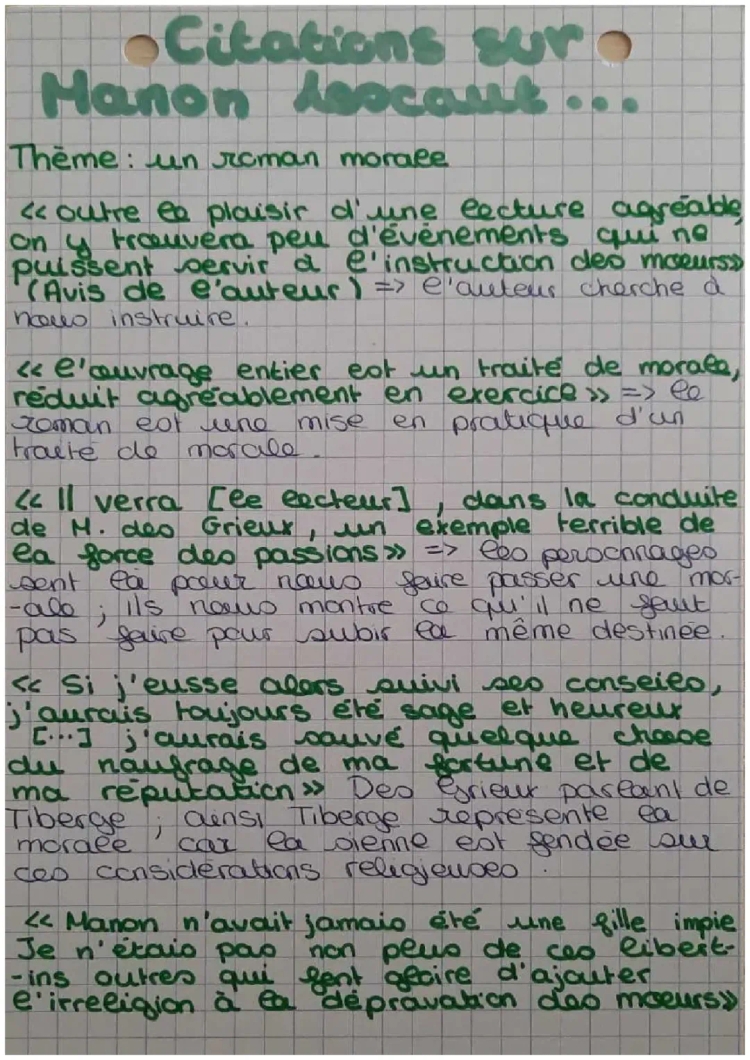 Citations sur
Manon Lescaut...
Thème : un roman morale
<< outre la plaisir d'une lecture agréable,
on y trouvera peu d'événements qui ne
puissent servir à l'instruction des moeurs>>
(Avis de l'auteur) => l'auteur cherche à
nous instruire.
<< l'ouvrage entier est un traité de morale,
réduit agréablement en exercice >> => le
roman est une mise en pratique d'un
traité de morale.
<< Il verra [le lecteur], dans la conduite
de M. des Grieux, un exemple terrible de
la force des passions>> => les personnages
sont là pour nous faire passer une mor-
-ale ; ils nous montre ce qu'il ne faut
pas faire pour subir la même destinée.
<< Si j'eusse alors suivi ses conseils,
j'aurais toujours été sage et heureux
[...] j'aurais sauvé quelque chose
du naufrage de ma fortune et de
ma réputation>> Des Grieux parlant de
Tiberge ; ainsi Tiberge représente la
morale, car la sienne est fondée sur
ces considérations religieuses.
<< Manon n'avait jamais été une fille impie
Je n'étais pas non plus de ces libert-
-ins outres qui font gloire d'ajouter
l'irreligion à la dépravation des moeurs>>